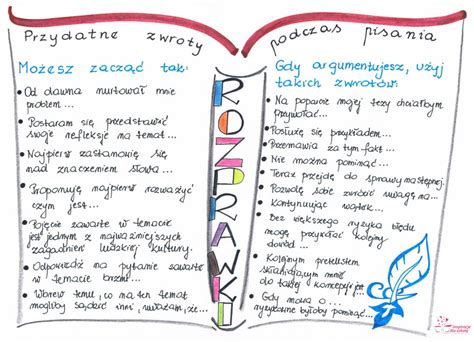 Przydatne zwroty podczas pisania
Możesz zacząć tak:
• Od dawna nurtował mnie
problem...
• Postaram się przedstawić
swoje refleksje na temat...
• Najpierw zastanowię się
nad znaczeniem słowa...
• Proponuję najpierw rozważyć
czym jest...
• Pojęcie zawarte w temacie
jest jednym z najważniejszych
zagadnień ludzkiej kultury.
• Odpowiedź na pytanie zawarte
w temacie brzmi...
• Wbrew temu, co na ten temat
mogliby sądzić inni, uważam, że...
ROZPRAWKI
Gdy argumentujesz, użyj
takich zwrotów:
• Na poparcie mojej tezy chciałbym
przywołać...
• Posłużę się przykładem...
• Przemawia za tym fakt...
• Nie można pominąć...
• Teraz przejdę do sprawy następnej.
• Pozwolę sobie zwrócić uwagę na...
• Kontynuując wątek...
• Bez większego ryzyka błędu
mogę przytykać kolejny
dowód...
• Kolejnym
do takiej koncepcji jest
• Gdy mowa o ...
byłoby pominąć...